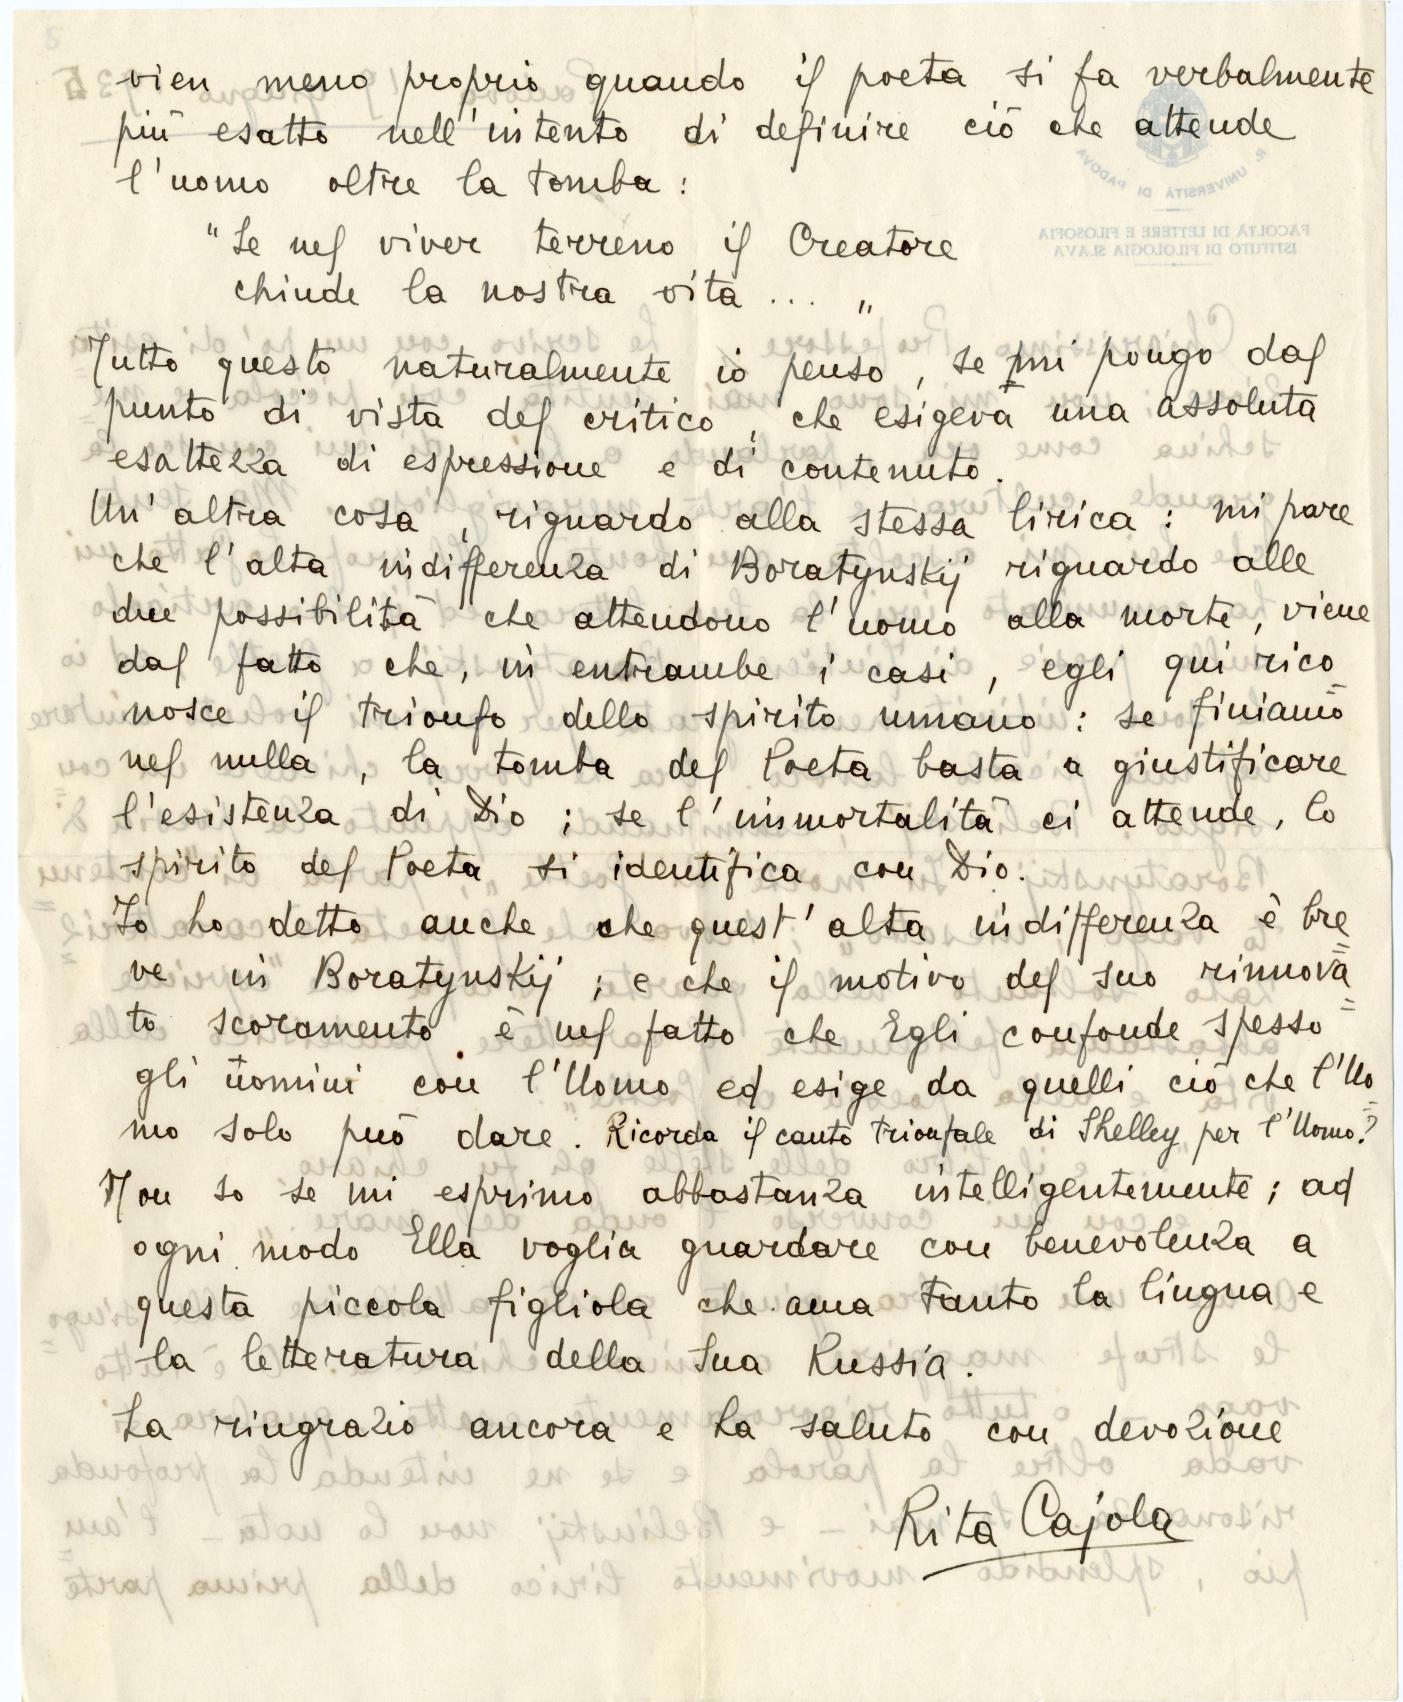 vien meno proprio quando il poeta si fa verbalmente
più esatto nell'intento di definire ciò che attende
l'uomo oltre la tomba :
"Se nel viver terreno il Creatore
chiude la nostra vita ... "
Tutto questo naturalmente io penso, se mi pongo dal
punto di vista del critico, che esigeva una assoluta
esattezza di espressione e di contenuto.
Un'altra cosa, riguardo alla stessa lirica : mi pare
che l'alta indifferenza di Boratynskij riguardo alle
due possibilità che attendono l'uomo alla morte, viene
dal fatto che, in entrambe i casi, egli qui rico
nosce il trionfo dello spirito umano : se finiamo
nel nulla, la tomba del Poeta basta a giustificare
l'esistenza di Dio ; se l'immortalità ci attende, lo
spirito del Poeta si identifica con Dio.
Io ho detto anche che quest'alta indifferenza è bre=
ve in Boratynskij ; e che il motivo del suo rinnova=
to scoramento è nel fatto che Egli confonde spesso
gli uomini con l'Uomo ed esige da quelli ciò che l'Uo=
mo solo può dare. Ricorda il canto trionfale di Shelley per l'Uomo?
Non so se mi esprimo abbastanza intelligentemente ; ad
ogni modo Ella voglia guardare con benevolenza a
questa piccola figliola che ama tanto la lingua e
la letteratura della Sua Russia.
La ringrazio ancora e La saluto con devozione
Rita Cajola
R. UNIVERSITÀ DI PADOVA
FACOLTÀ DI LETTERE E FILOSOFIA
ISTITUTO DI FILOLOGIA SLAVA